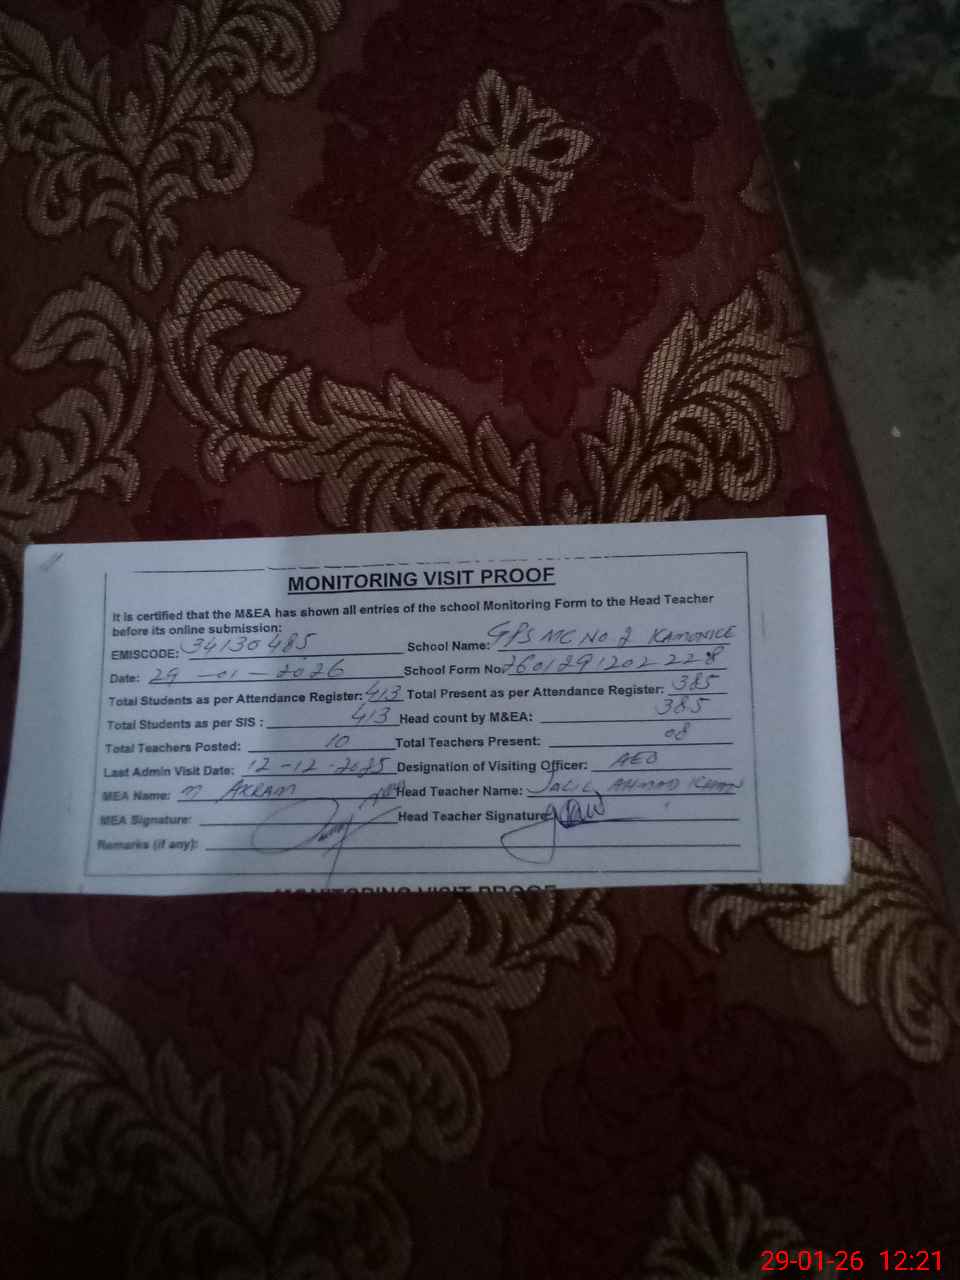 MONITORING VISIT PROOF
It is certified that the M&EA has shown all entries of the school Monitoring Form to the Head Teacher
before its online submission:
EMISCODE: 34130485 School Name: GPS MC NO 2 KAMONKE
Date: 29-01-2026 School Form No. 2601291202228
Total Students as per Attendance Register: 413 Total Present as per Attendance Register: 385
Total Students as per SIS : 413 Head count by M&EA: 385
Total Teachers Posted: 10 Total Teachers Present: 08
Last Admin Visit Date: 12-12-2025 Designation of Visiting Officer: AEO
MEA Name: M AKRAM Head Teacher Name: JALIL AHMAD KHAN
MEA Signature: Head Teacher Signature
Remarks (if any):
MONITORING VISIT PROOF
29-01-26 12:21